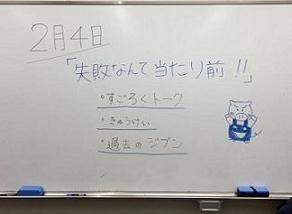 2月4日
「失敗なんて当たり前!!」
・すごろくトーク
・きゅうけい
・過去のジブン